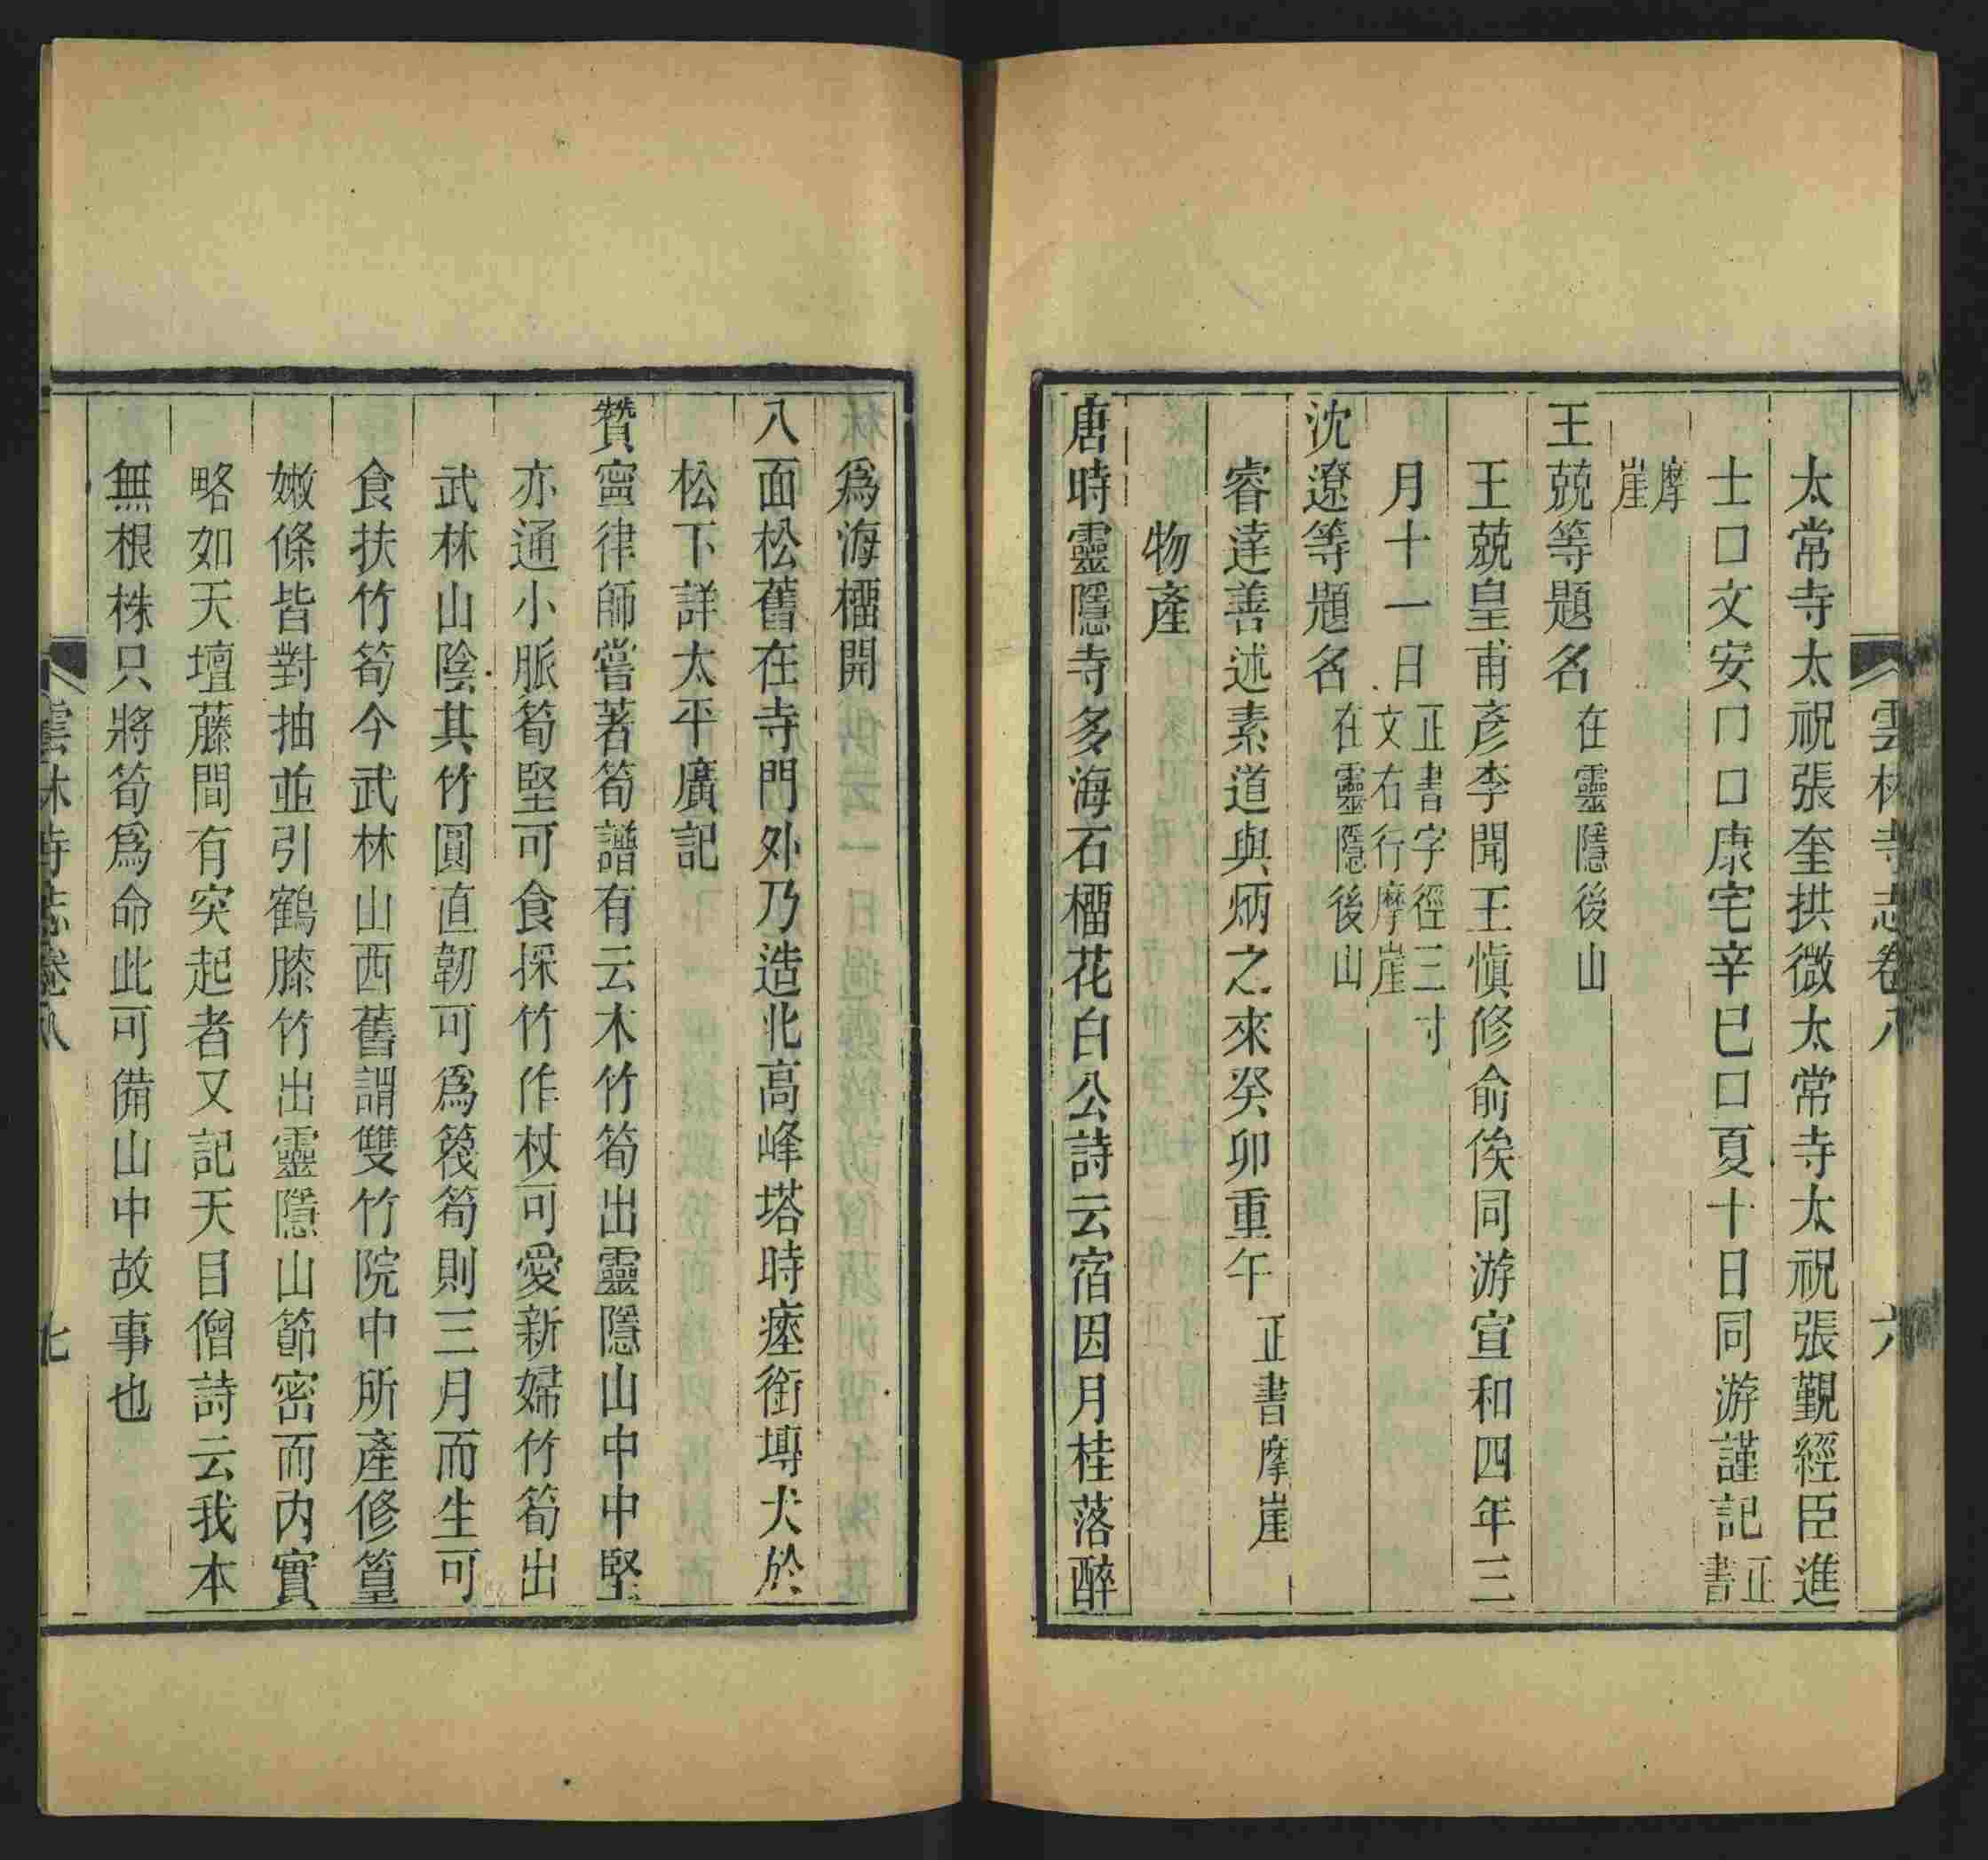 雲林寺志卷八 六
太常寺太祝張奎拱微太常寺太祝張覲經臣進
士口文安口口康宅辛巳口夏十日同游謹記正書
摩崖
王兢等題名在靈隱後山
王兢皇甫彥李聞王愼修俞俟同游宣和四年三
月十一日正書字徑三寸文右行摩崖
沈遼等題名在靈隱後山
睿達善述素道與炳之來癸卯重午正書摩崖
物產
唐時靈隱寺多海石橊花白公詩云宿因月桂落醉
爲海橊開
八面松舊在寺門外乃造北高峰塔時瘞銜塼犬於
松下詳太平廣記
贊寧律師嘗著筍譜有云木竹筍出靈隱山中中堅
亦通小脈筍堅可食採竹作杖可愛新婦竹筍出
武林山陰其竹圓直韌可爲篾筍則三月而生可
食扶竹筍今武林山西舊謂雙竹院中所產修篁
嫩條皆對抽並引鶴膝竹出靈隱山節密而內實
略如天壇藤間有突起者又記天目僧詩云我本
無根株只將筍爲命此可備山中故事也
雲林寺志卷八 七